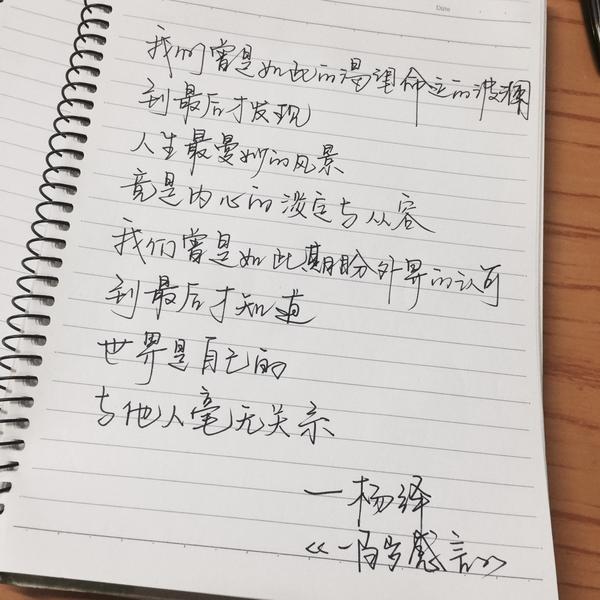 Date
我们曾是如此的渴望命运的波澜
到最后才发现
人生最曼妙的风景
竟是内心的淡定与从容
我们曾是如此期盼外界的认可
到最后才知道
世界是自己的
与他人毫无关系
—杨绛
《一百岁感言》